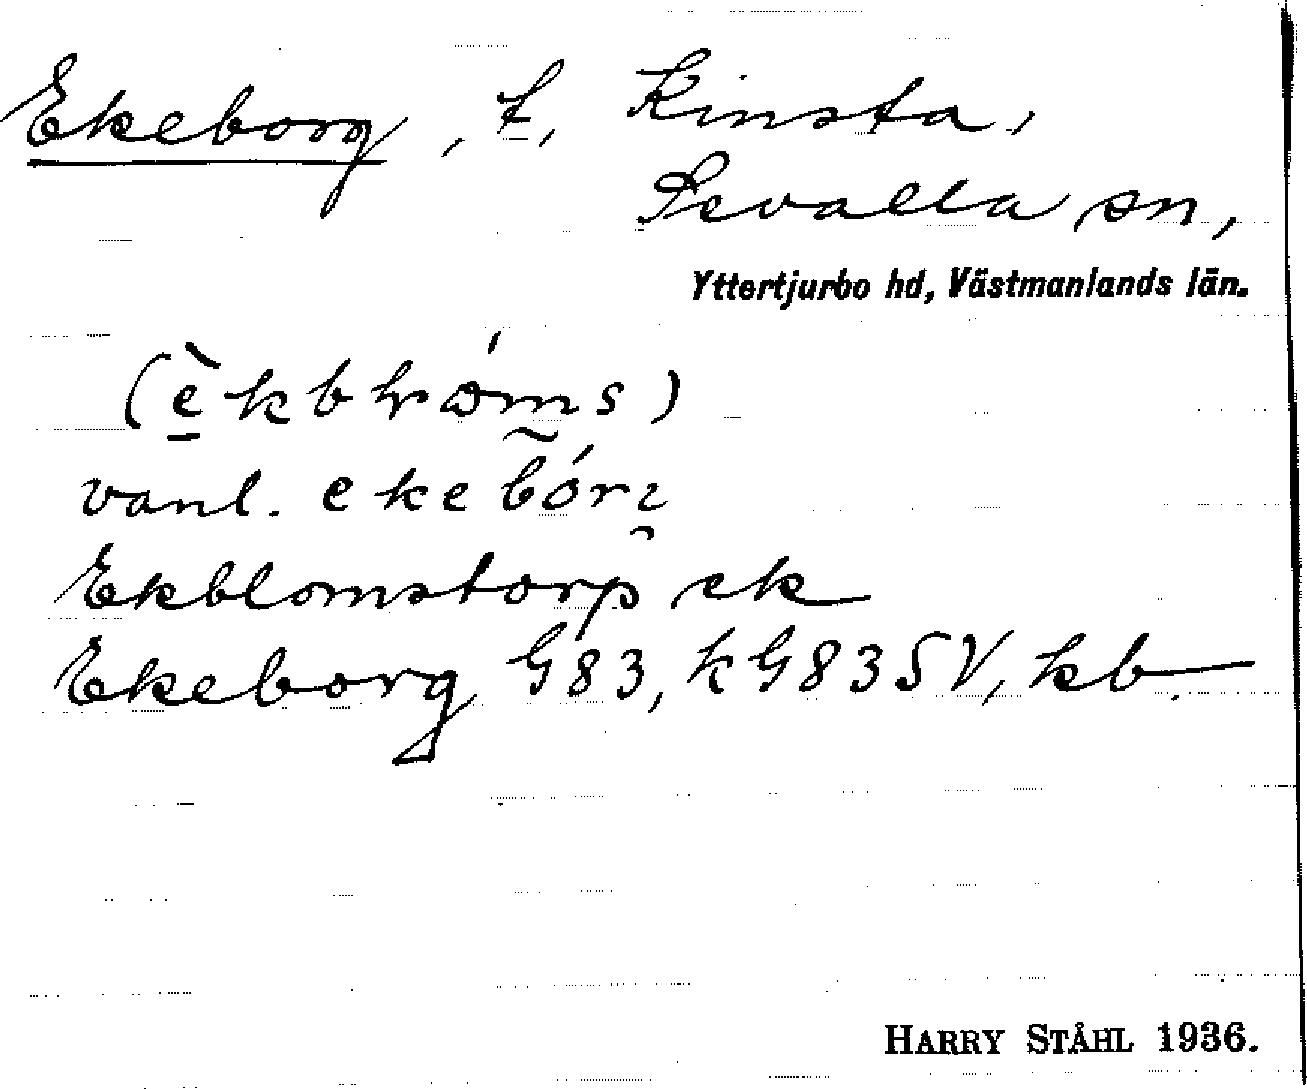 Ekeborg, t, Kinsta,
Sevalla sn,
Yttertjurbo hd, Västmanlands län.
vanl.
Ekblomstorp ek
Ekeborg G83, kG83SV, kb.
HARRY STÅHL 1936.